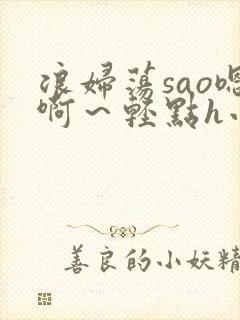 浪婦蕩sao嗯
啊～輕點h小
善良的小妖精